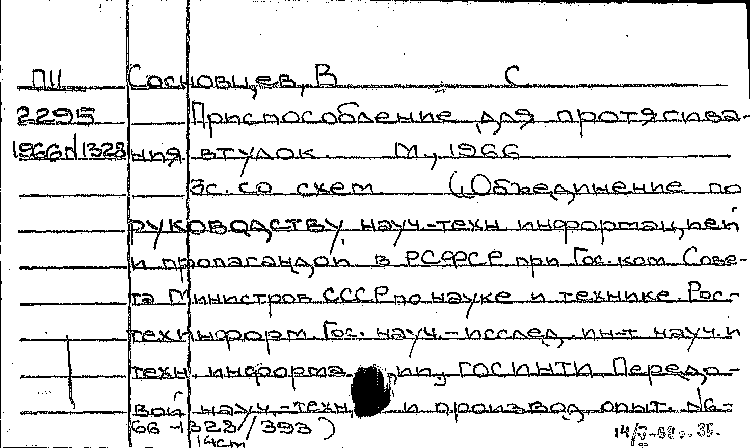 ПИ Сосновцев, В С
2295 Приспособление для протягива-
1966п/1328 ния втулок. М., 1966
3с. со схем. (Объединение по
руководству науч.-техн информацией
и пропагандой в РСФСР при Гос. ком. Сове-
та Министров СССР по науке и технике. Рос-
техинформ. Гос. науч.-исслед. ин-т науч. и
техн. информации, ГОСИНТИ Передо-
вой науч.-техн. и производ. опыт. №-
66-1328/393)